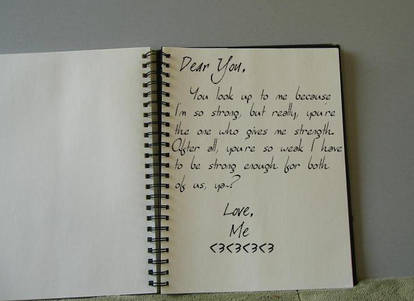 Dear You,
You look up to me because
I'm so strong, but really, you're
the one who gives me strength.
After all, you're so weak I have
to be strong enough for both
of us, ya?
Love,
Me
<3<3<3<3